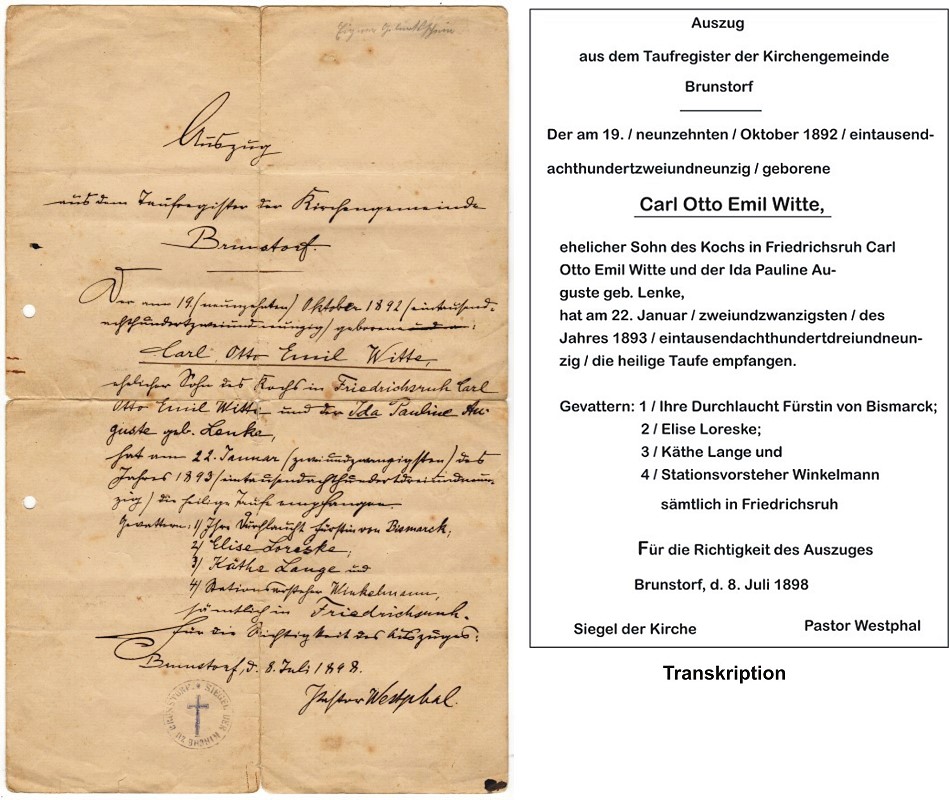 Eigener Geburtsschein
Auszug
aus dem Taufregister der Kirchengemeinde
Brunstorf.
Der am 19. / neunzehnten / Oktober 1892 / eintausend-
achthundertzweiundneunzig / geborene
Carl Otto Emil Witte,
ehelicher Sohn des Kochs in Friedrichsruh Carl
Otto Emil Witte und der Ida Pauline Au-
guste geb. Lenke,
hat am 22. Januar / zweiundzwanzigsten / des
Jahres 1893 / eintausendachthundertdreiundneun-
zig / die heilige Taufe empfangen.
Gevattern: 1/ Ihre Durchlaucht Fürstin von Bismarck;
2/ Elise Loreske;
3/ Käthe Lange und
4/ Stationsvorsteher Winkelmann,
sämtlich in Friedrichsruh.
Für die Richtigkeit des Auszuges:
Brunstorf, d. 8. Juli 1898.
Pastor Westphal.
SIEGEL DER KIRCHE ZU BRUNSTORF
Auszug
aus dem Taufregister der Kirchengemeinde
Brunstorf
Der am 19. / neunzehnten / Oktober 1892 / eintausend-
achthundertzweiundneunzig / geborene
Carl Otto Emil Witte,
ehelicher Sohn des Kochs in Friedrichsruh Carl
Otto Emil Witte und der Ida Pauline Au-
guste geb. Lenke,
hat am 22. Januar / zweiundzwanzigsten / des
Jahres 1893 / eintausendachthundertdreiundneun-
zig / die heilige Taufe empfangen.
Gevattern: 1 / Ihre Durchlaucht Fürstin von Bismarck;
2 / Elise Loreske;
3 / Käthe Lange und
4 / Stationsvorsteher Winkelmann
sämtlich in Friedrichsruh
Für die Richtigkeit des Auszuges
Brunstorf, d. 8. Juli 1898
Siegel der Kirche
Pastor Westphal
Transkription